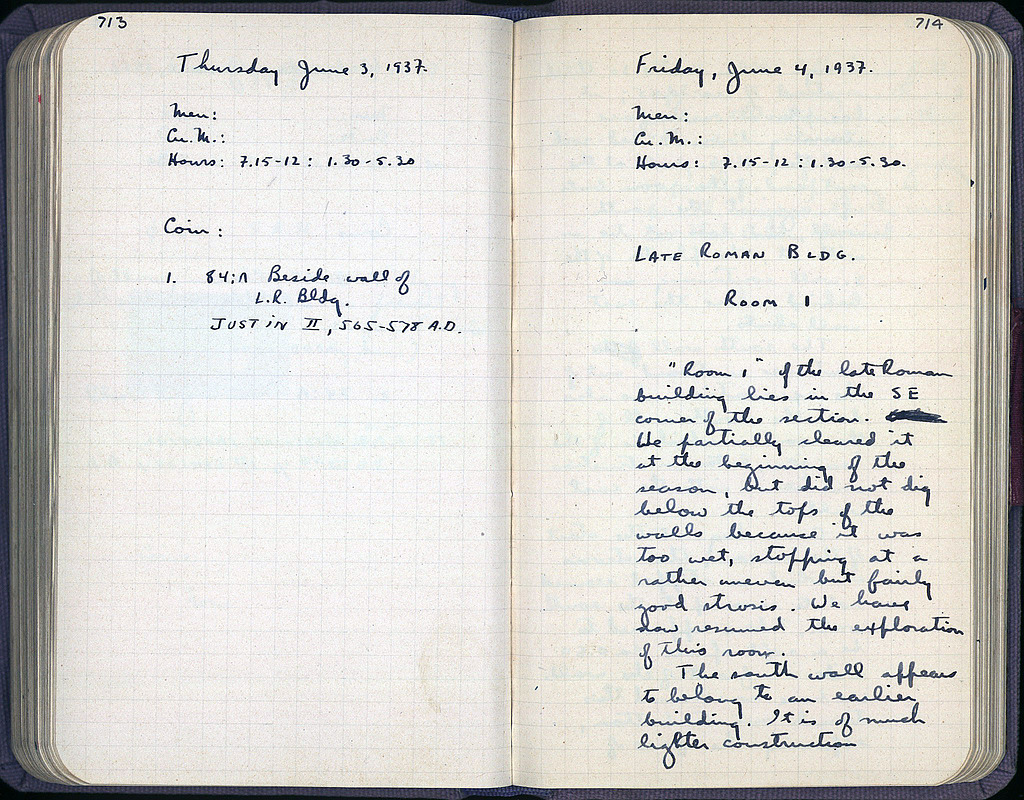 713
Thursday June 3, 1937.
Men:
Cu. M.:
Hours: 7.15-12: 1.30-5.30
Coin:
1. 84;Λ Beside wall of
L.R. Bldg.
JUSTIN II, 565-578 A.D.
714
Friday, June 4, 1937.
Men:
Cu. M.:
Hours: 7.15-12: 1.30-5.30.
LATE ROMAN BLDG.
ROOM 1
"Room 1" of the late Roman
building lies in the SE
corner of the section.
We partially cleared it
at the beginning of the
season, but did not dig
below the tops of the
walls because it was
too wet, stopping at a
rather uneven but fairly
good strosis. We have
now resumed the exploration
of this room.
The south wall appears
to belong to an earlier
building. It is of much
lighter construction